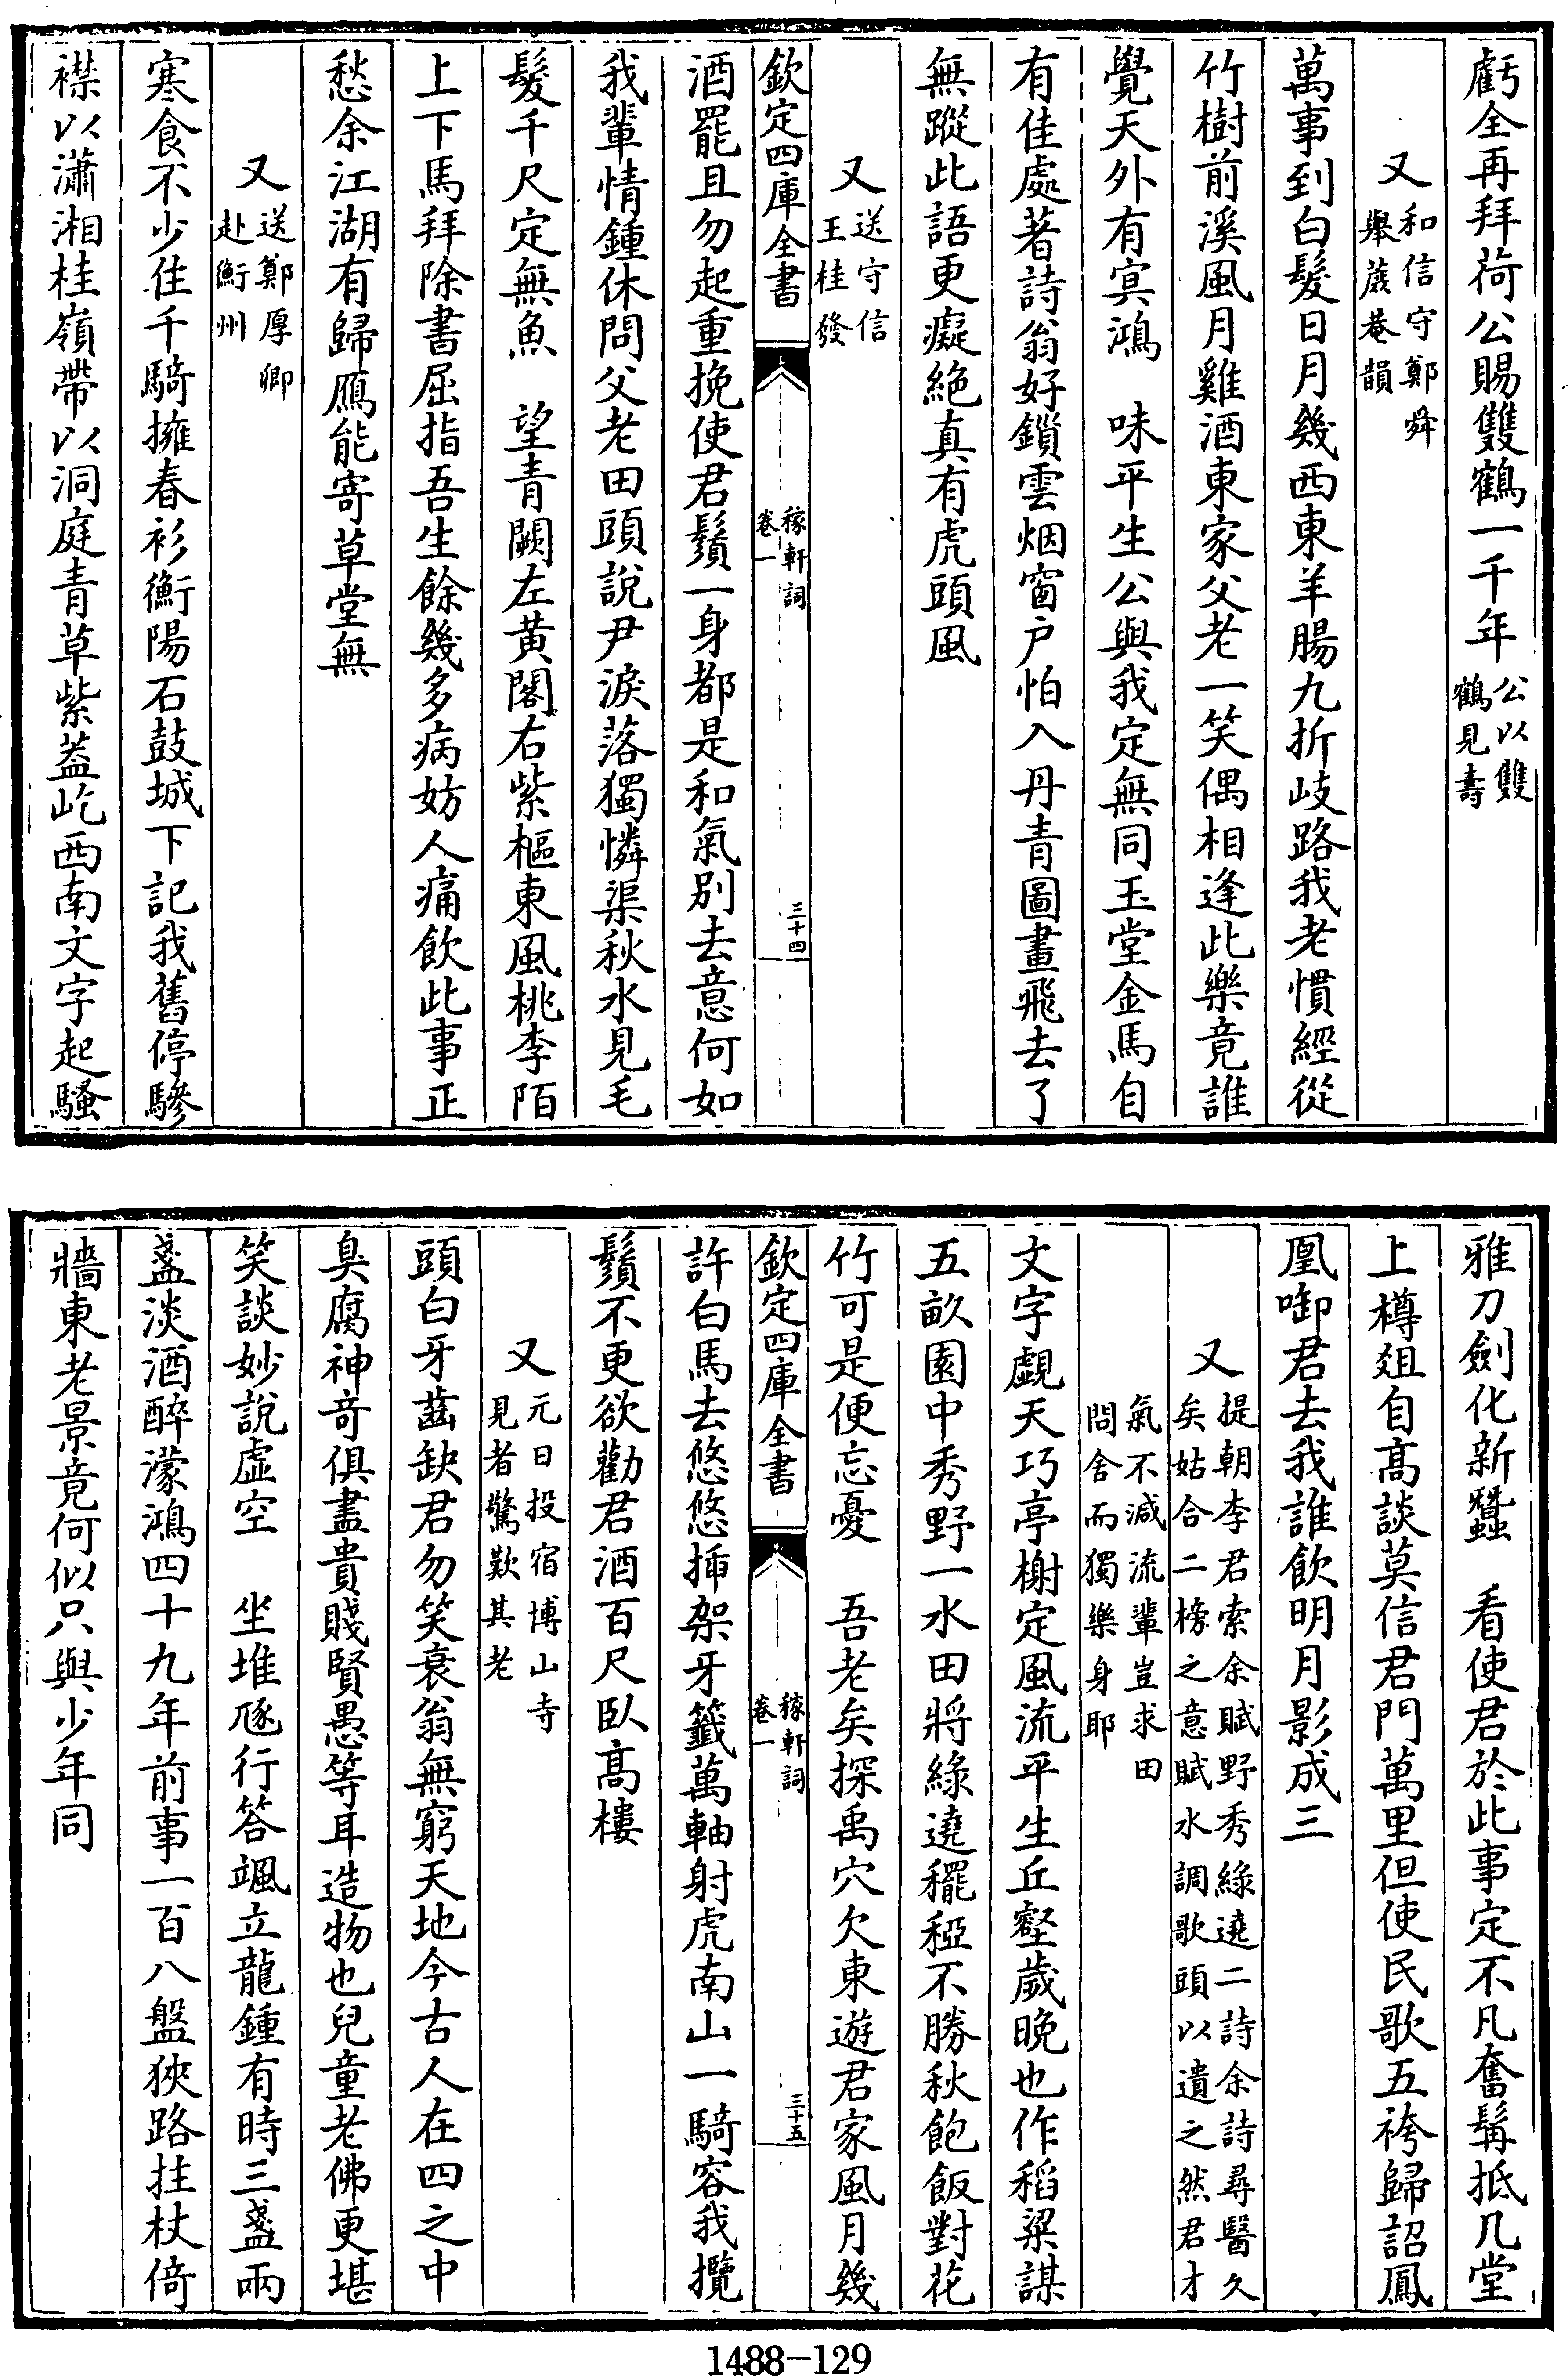 虧全再拜荷公賜雙鶴一千年公以雙鶴見壽
又和信守鄭舜舉蔗菴韻
萬事到白髮日月幾西東羊腸九折岐路我老慣經從
竹樹前溪風月雞酒東家父老一笑偶相逢此樂竟誰
覺天外有冥鴻　味平生公與我定無同玉堂金馬自
有佳處著詩翁好鎖雲烟窗户怕入丹青圖畫飛去了
無蹤此語更癡絶真有虎頭風
又送守信王桂發
欽定四庫全書
稼軒詞
卷一
三十四
酒罷且勿起重挽使君鬚一身都是和氣别去意何如
我輩情鍾休問父老田頭說尹淚落獨憐渠秋水見毛
髮千尺定無魚　望青闕左黄閣右紫樞東風桃李陌
上下馬拜除書屈指吾生餘幾多病妨人痛飲此事正
愁余江湖有歸鴈能寄草堂無
又送鄭厚卿赴衡州
寒食不少住千騎擁春衫衡陽石鼓城下記我舊停驂
襟以瀟湘桂嶺帶以洞庭青草紫蓋屹西南文字起騷
雅刀劍化新蠶　看使君於此事定不凡奮髯抵几堂
上樽俎自髙談莫信君門萬里但使民歌五袴歸詔鳳
凰啣君去我誰飲明月影成三
又提朝李君索余賦野秀綠遶二詩余詩尋醫久矣姑合二榜之意賦水調歌頭以遺之然君才
氣不減流輩豈求田問舍而獨樂身耶
文字覷天巧亭榭定風流平生丘壑歲晚也作稻粱謀
五畝園中秀野一水田將綠遶䆉稏不勝秋飽飯對花
竹可是便忘憂　吾老矣探禹穴欠東遊君家風月幾
欽定四庫全書
稼軒詞
卷一
三十五
許白馬去悠悠插架牙籖萬軸射虎南山一騎容我攬
鬚不更欲勸君酒百尺臥髙樓
又元日投宿博山寺見者驚歎其老
頭白牙齒缺君勿笑衰翁無窮天地今古人在四之中
臭腐神竒俱盡貴賤賢愚等耳造物也兒童老佛更堪
笑談妙說虚空　坐堆豗行答颯立龍鍾有時三盞兩
盞淡酒醉濛鴻四十九年前事一百八盤狹路拄杖倚
牆東老景竟何似只與少年同
1488—129